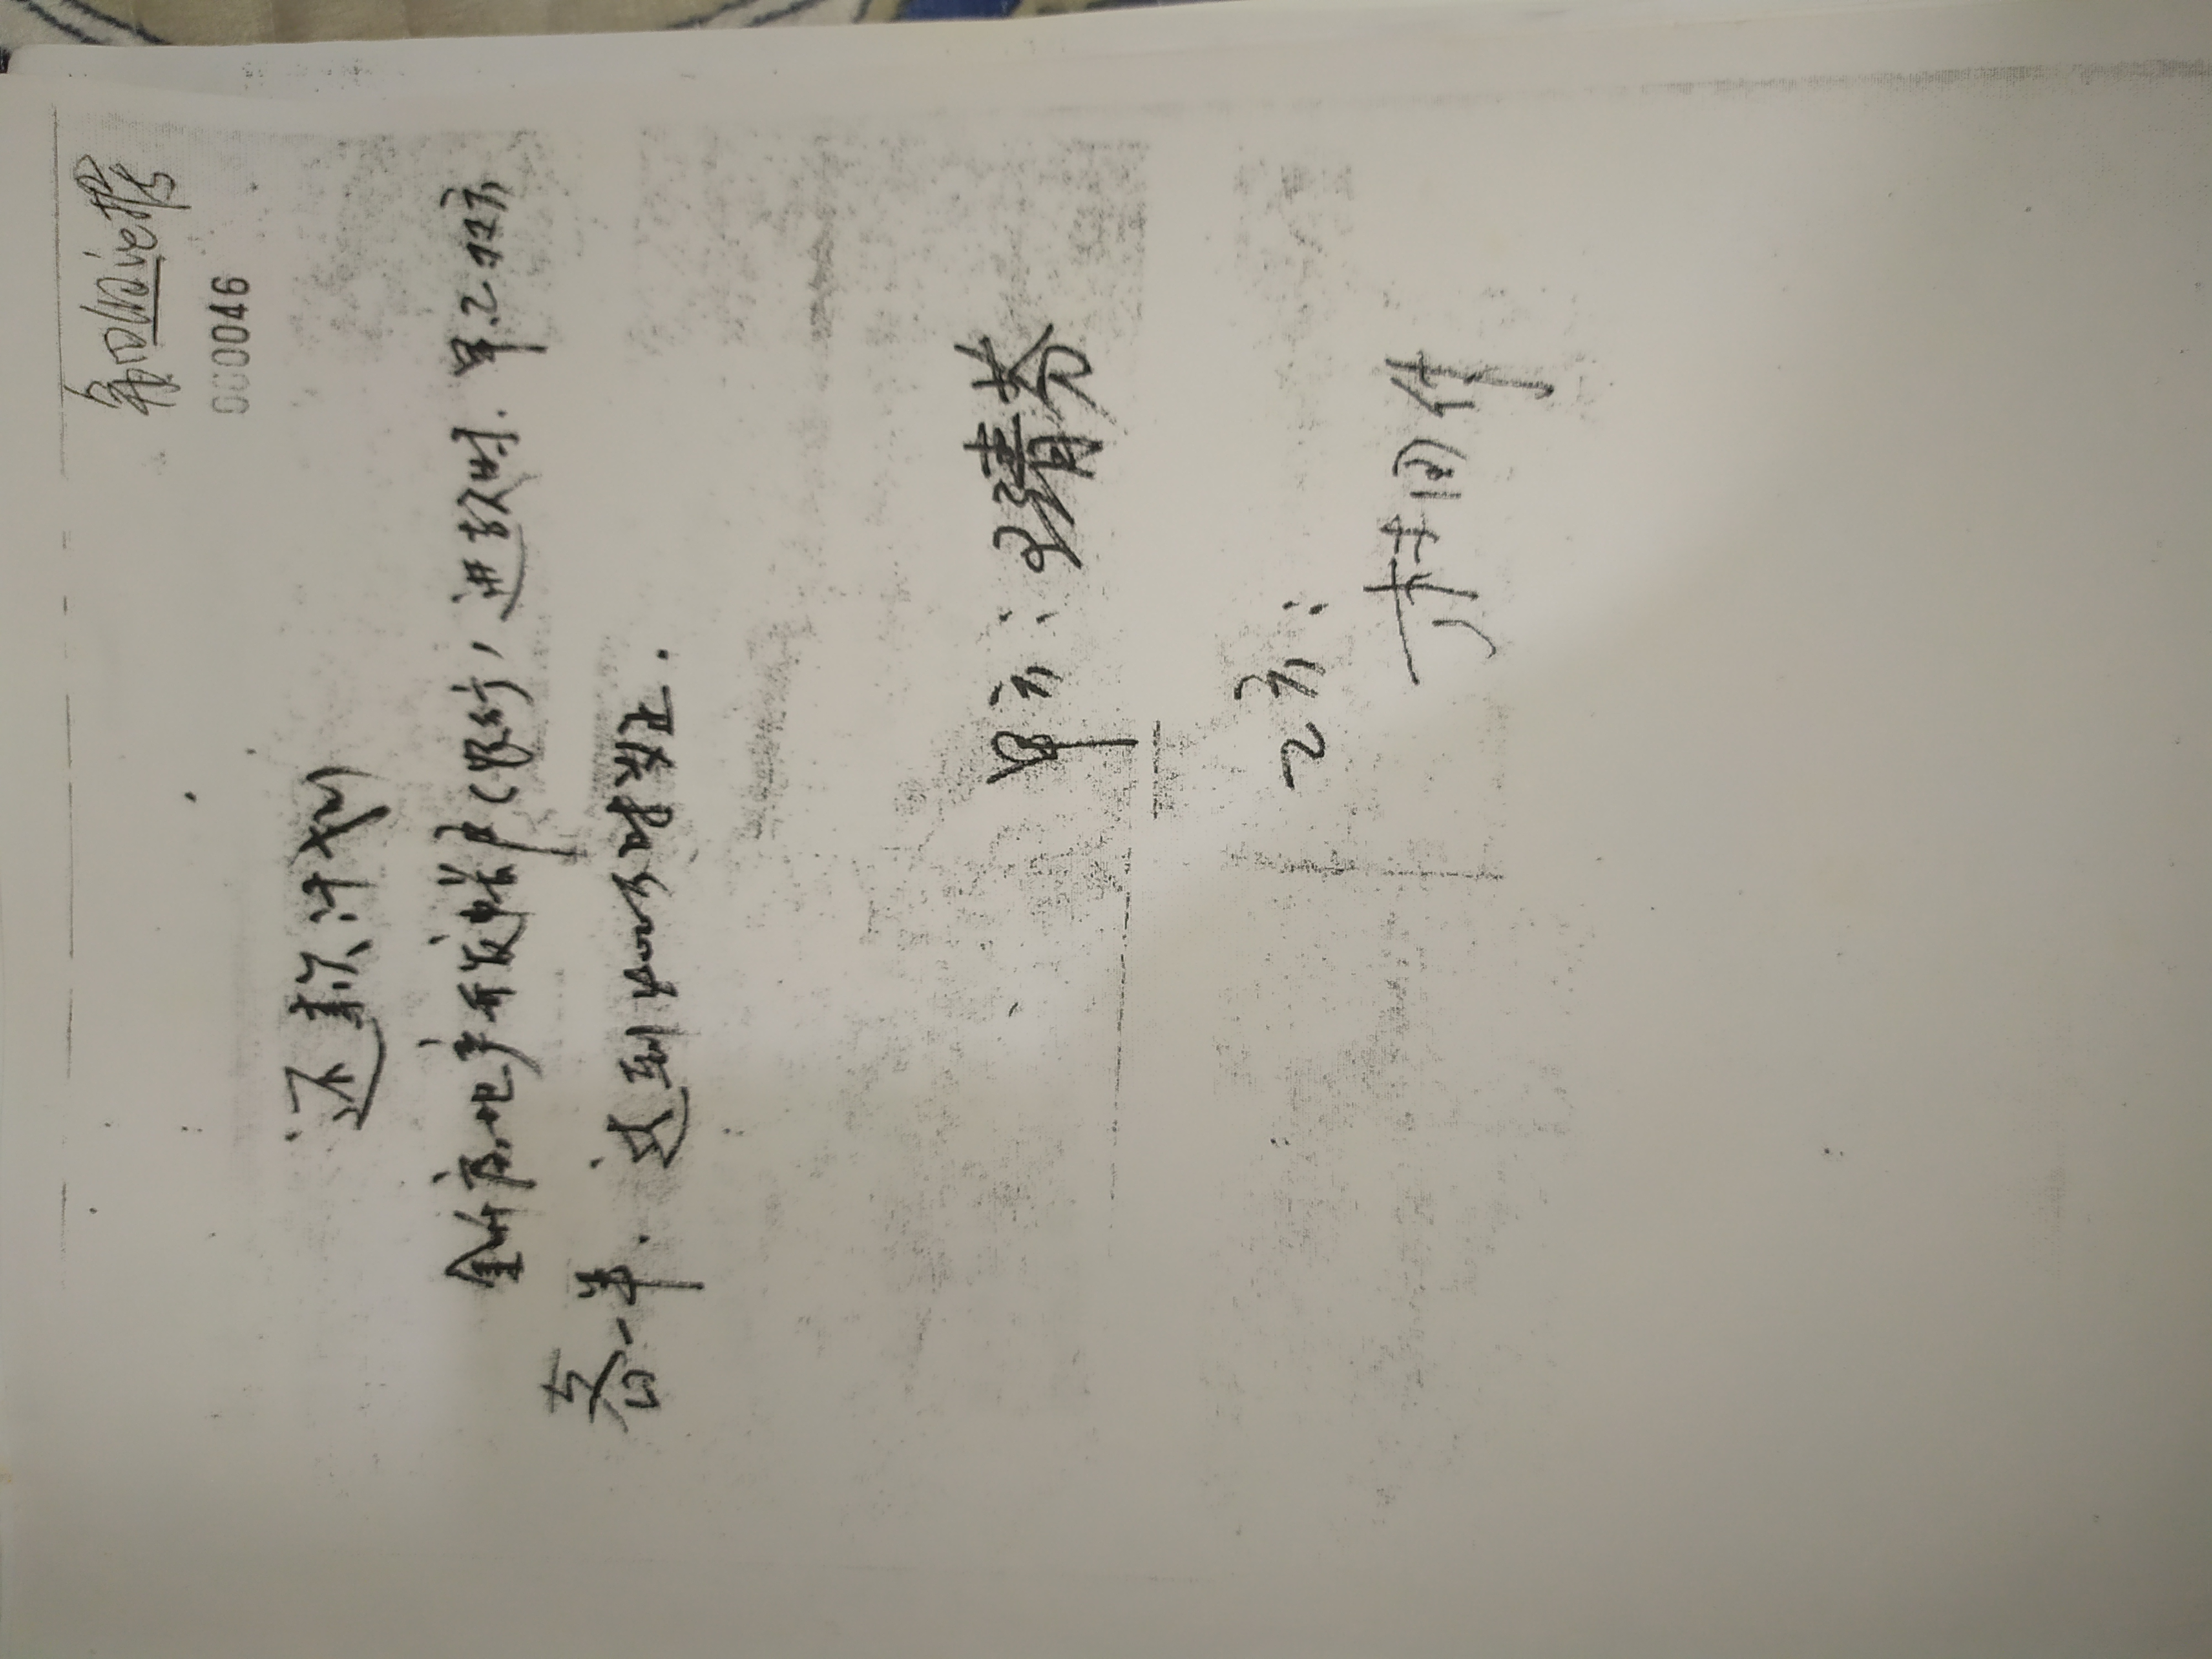 第四组证据
000046
还款计划
金升房地产开发帐户(银行)进款时.甲.乙双方
各一半.达到400万时为止.
甲方:王清芬
乙方:
林国伟